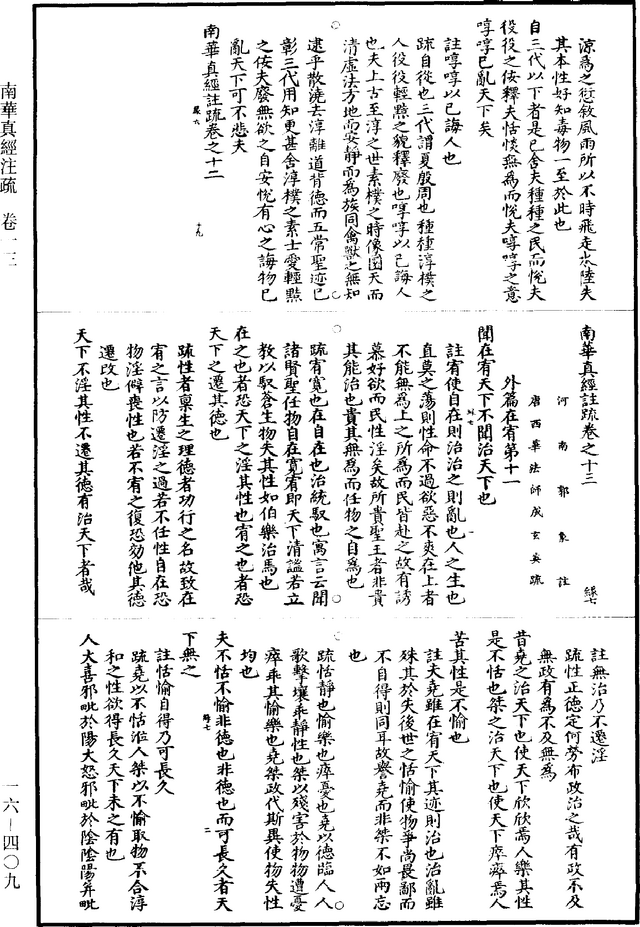 南華真經注疏　卷一三
涼為之愆敘風雨所以不時飛走水陸失
其本性好知毒物一至於此也
自三代以下者是已舍夫種種之民而悅夫
役役之佞釋夫恬惔無為而悅夫啍啍之意
啍啍已亂天下矣
註啍啍以己誨人也
疏自從也三代謂夏殷周也種種淳樸之
人役役輕黠之貌釋廢也啍啍以己誨人
也夫上古至淳之世素樸之時像圓天而
清虛法方地而安靜而為族同禽獸之無知
逮乎散澆去淳離道背德而五常聖迹已
彰三代用知更甚舍淳樸之素士愛輕黠
之佞夫廢無欲之自安悅有心之誨物已
亂天下可不悲夫
南華真經註疏卷之十二
十九
南華真經註疏卷之十三
河南郭象註
唐西華法師成玄英疏
外篇在宥第十一
聞在宥天下不聞治天下也
註宥使自在則治治之則亂也人之生也
直莫之蕩則性命不過欲惡不爽在上者
不能無為上之所為而民皆赴之故有誘
慕好欲而民性淫矣故所貴聖王者非貴
其能治也貴其無為而任物之自為也
疏宥寬也在自在也治統馭也寓言云聞
諸賢聖任物自在寬宥即天下清謐若立
教以馭蒼生物失其性如伯樂治馬也
在之也者恐天下之淫其性也宥之也者恐
天下之遷其德也
疏性者稟生之理德者功行之名故致在
宥之言以防遷淫之過若不任性自在恐
物淫僻喪性也若不宥之復恐効他其德
遷改也
天下不淫其性不遷其德有治天下者哉
註無治乃不遷淫
疏性正德定何勞布政治之哉有政不及
無政有為不及無為
昔堯之治天下也使天下欣欣焉人樂其性
是不恬也桀之治天下也使天下瘁瘁焉人
苦其性是不愉也
註夫堯雖在宥天下其迹則治也治亂雖
殊其於失後世之恬愉使物爭尚畏鄙而
不自得則同耳故譽堯而非桀不如兩忘
也
疏恬靜也愉樂也瘁憂也堯以德臨人人
歌擊壤乖靜性也桀以殘害於物物遭憂
瘁乖其愉樂也堯桀政代斯異使物失性
均也
夫不恬不愉非德也非德也而可長久者天
下無之
註恬愉自得乃可長久
疏堯以不恬涖人桀以不愉取物不合淳
和之性欲得長久天下未之有也
人大喜邪毗於陽大怒邪毗於陰陰陽并毗
一六—四〇九